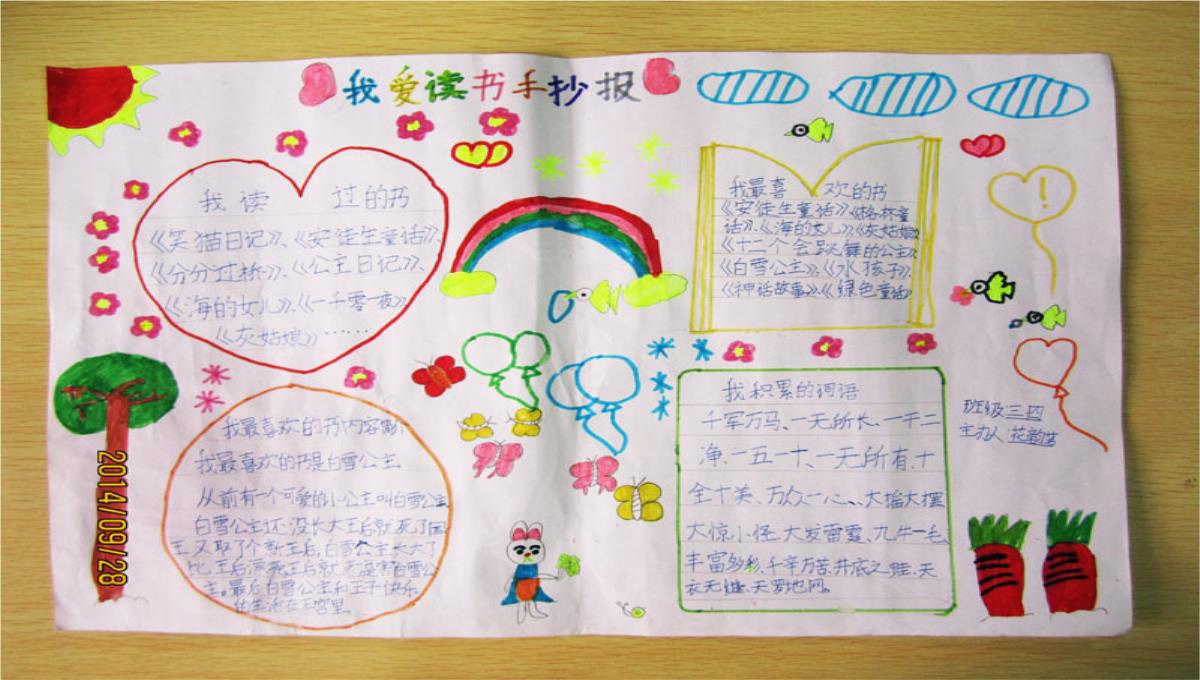 我爱读书手抄报
我读过的书
《笑猫日记》、《安徒生童话》、
《分分过桥》、《公主日记》、
《海的女儿》、《一千零一夜》、
《灰姑娘》……
我最喜欢的书
《安徒生童话》、《格林童
话》、《海的女儿》、《灰姑娘》
《十二个会跳舞的公主》、
《白雪公主》、《水孩子》、
《神话故事》、《绿色童话》
我最喜欢的书内容简介
我最喜欢的书是白雪公主
从前有一个可爱的小公主叫白雪公主
白雪公主还没长大王后就死了国
王又取了个新王后,白雪公主长大了
比王后漂亮王后就
主。最后白雪公主和王子快乐
的生活在王宫里。
我积累的词语
千军万马、一无所长、一干二
净、一五一十、一无所有、十
全十美、万众一心、大摇大摆
大惊小怪、大发雷霆、九牛一毛
丰富多彩、千辛万苦、井底之蛙、天
衣无缝、天罗地网。
班级三四
主办人
2014/09/28